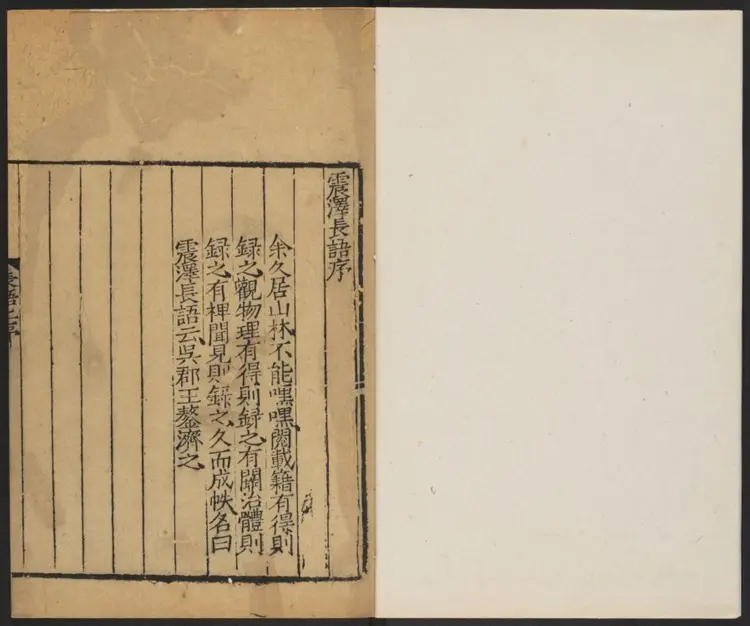 震澤長語序
余久居山林不能嘿嘿閱載籍有得則
録之觀物理有得則録之有關治體則
録之有裨聞見則録之久而成帙名曰
震澤長語云吳郡王鏊濟之
長語之序